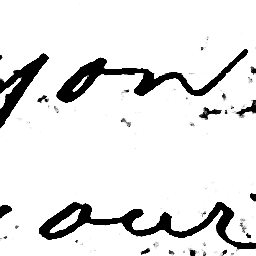 you
our